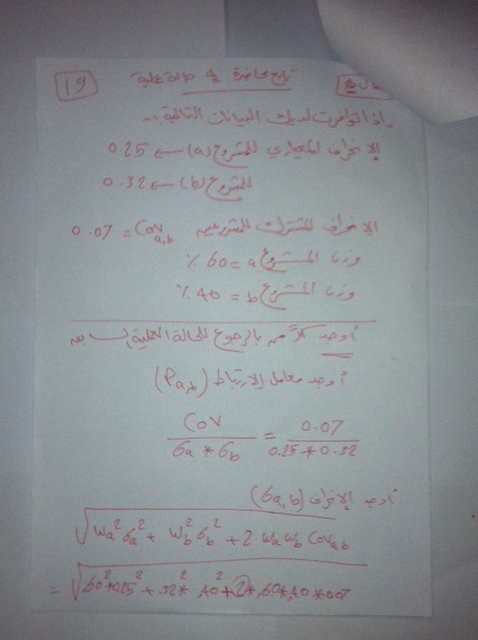 19
تابع محاضرة 4 حالة عملية
إذا توافرت لديك البيانات التالية :-
الإنحراف المعياري للمشروع (a) ← 0.25
للمشروع (b) ← 0.32
الإنحراف المشترك للمشروعين COV a,b = 0.07
وزن المشروع a = 60 %
وزن المشروع b = 40 %
أوجد كلاً من بالرجوع للحالة العملية
أوجد معامل الارتباط (Pa,b)
COV / σa * σb = 0.07 / 0.25 * 0.32
أوجد الإنحراف (σa,b)
√Wa² σa² + Wb² σb² + 2 Wa Wb COVa,b
= √60² * 0.25² + 32² * .40² + 2 * .60 * .40 * 0.07